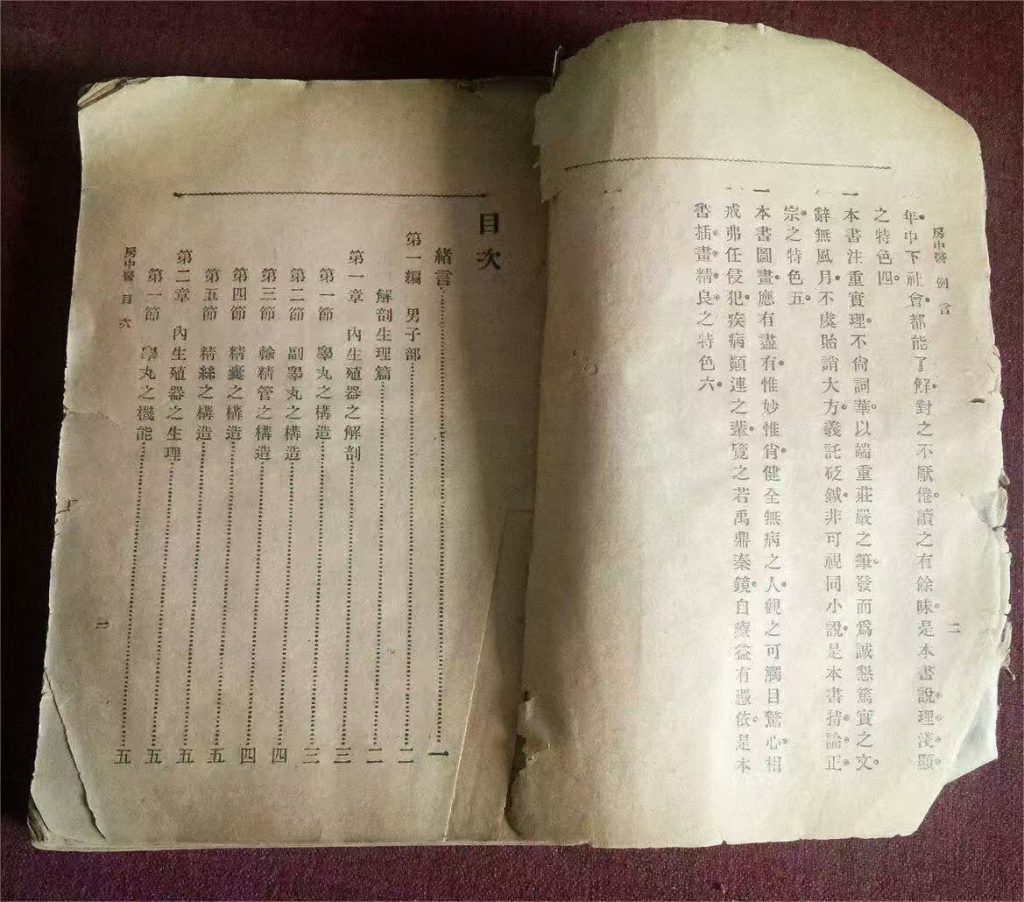 房中醫 例言
二
年中下社會都能了解對之不厭倦讀之有餘味是本書說理淺顯
之特色四
一本書注重實理不尙詞華以端重莊嚴之筆發而爲誠懇篤實之文
辭無風月不虞貽誚大方義託砭鍼非可視同小說是本書持論正
宗之特色五
一本書圖畫應有盡有惟妙惟肖健全無病之人觀之可觸目驚心相
戒弗任侵犯疾病顚連之輩覽之若禹鼎秦鏡自療益有憑依是本
書插畫精良之特色六
目次
緒言 一
第一編 男子部 二
解剖生理篇 二
第一章 內生殖器之解剖 三
第一節 睾丸之構造 三
第二節 副睾丸之構造 四
第三節 輸精管之構造 四
第四節 精囊之構造 五
第五節 精絲之構造 五
第二章 內生殖器之生理 五
第一節 睾丸之機能 五
房中醫 目次
一